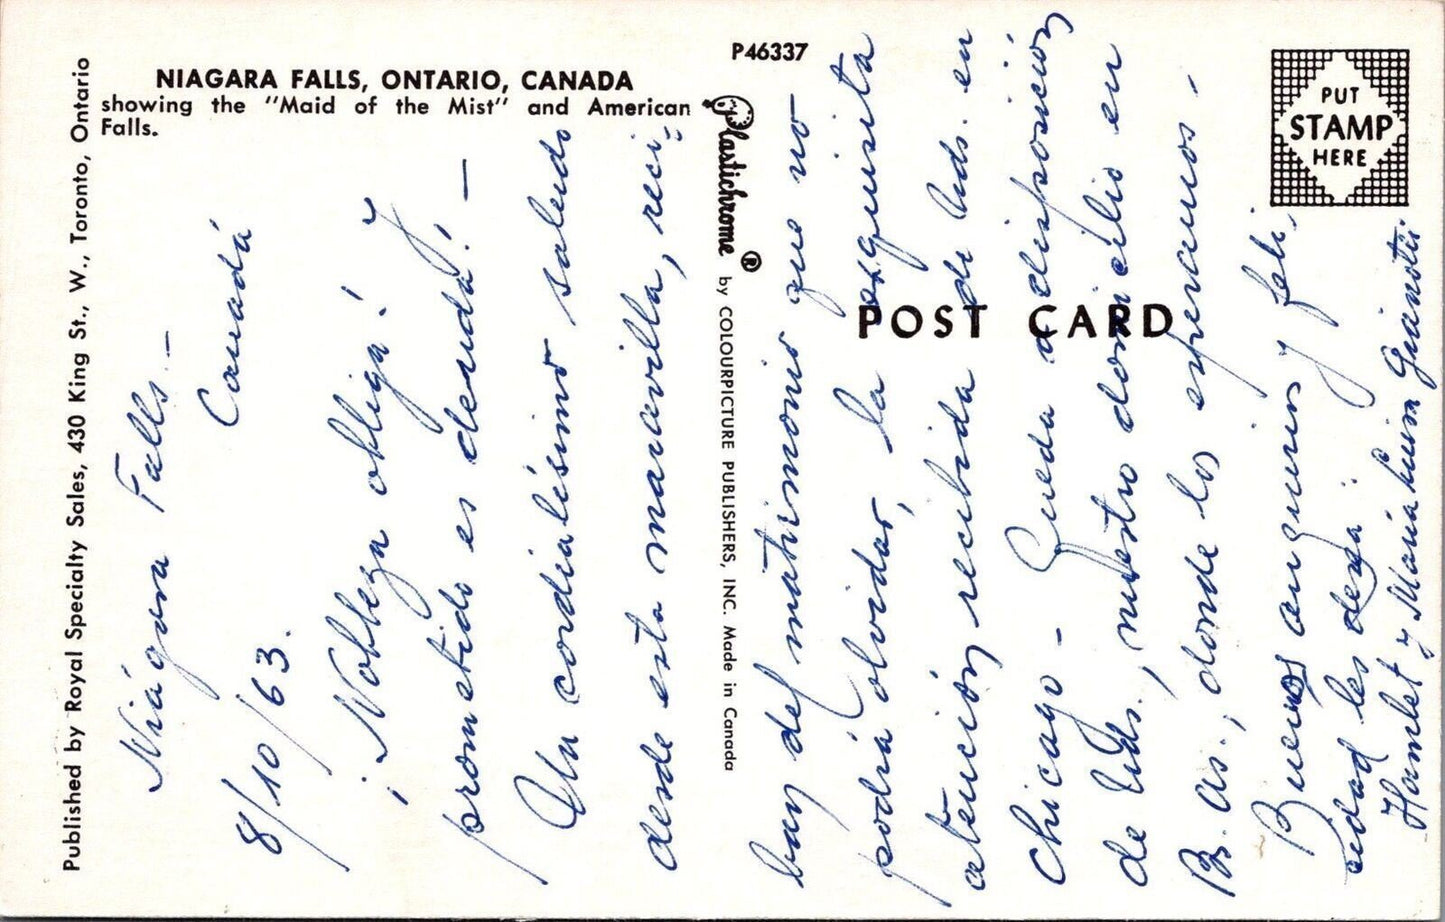 NIAGARA FALLS, ONTARIO, CANADA
showing the "Maid of the Mist" and American
Falls.
Published by Royal Specialty Sales, 430 King St., W., Toronto, Ontario
P46337
Plastichrome ® by COLOURPICTURE PUBLISHERS, INC. Made in Canada
POST CARD
PUT
STAMP
HERE
Niágara Falls.–
Canadá
8/10/63.
¡Nobleza obliga! y
¡prometido es deuda! –
Un cordialísimo saludo
desde esta maravilla, reci-
ban del matrimonio que no
podrá olvidar, la exquisita
atención recibida de Uds. en
Chicago – Queda a disposición
de Uds., nuestro domicilio en
Bs. As., donde los esperamos –
Buenos augurios y feli-
cidad les desea:
Hamlet y María